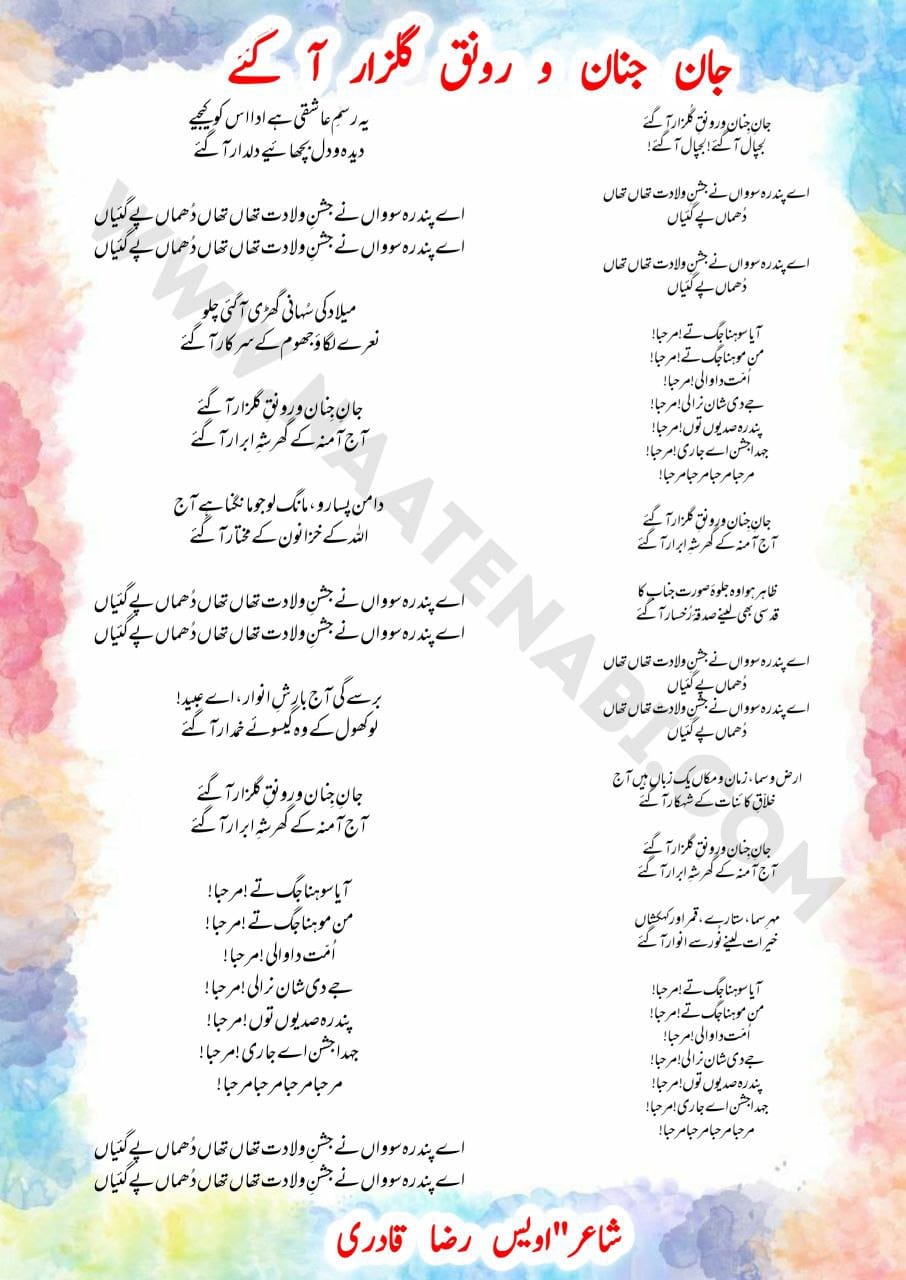 جان جنان و رونق گلزار آ گئے
جانِ جِنان و رونقِ گلزار آ گئے
لجپال آ گئے! لجپال آ گئے!
اے پندرہ سوواں نے جشنِ ولادت تھاں تھاں
دُھماں پے گئیاں
اے پندرہ سوواں نے جشنِ ولادت تھاں تھاں
دُھماں پے گئیاں
آیا سوہنا جگ تے! مرحبا!
من موہنا جگ تے! مرحبا!
اُمّت دا والی! مرحبا!
جے دی شان نرالی! مرحبا!
پندرہ صدیوں توں! مرحبا!
جہدا جشن اے جاری! مرحبا!
مرحبا مرحبا مرحبا مرحبا!
جانِ جِنان و رونقِ گلزار آ گئے
آج آمنہ کے گھر شہِ ابرار آ گئے
ظاہر ہوا وہ جلوۂ صورت جناب کا
قدسی بھی لینے صدقۂ رُخسار آ گئے
اے پندرہ سوواں نے جشنِ ولادت تھاں تھاں
دُھماں پے گئیاں
اے پندرہ سوواں نے جشنِ ولادت تھاں تھاں
دُھماں پے گئیاں
ارض و سما، زمان و مکاں یک زباں ہیں آج
خلّاقِ کائنات کے شہکار آ گئے
جانِ جِنان و رونقِ گلزار آ گئے
آج آمنہ کے گھر شہِ ابرار آ گئے
مہرِ سما، ستارے، قمر اور کہکشاں
خیرات لینے نُور سے انوار آ گئے
آیا سوہنا جگ تے! مرحبا!
من موہنا جگ تے! مرحبا!
اُمّت دا والی! مرحبا!
جے دی شان نرالی! مرحبا!
پندرہ صدیوں توں! مرحبا!
جہدا جشن اے جاری! مرحبا!
مرحبا مرحبا مرحبا مرحبا!
یہ رسمِ عاشقی ہے ادا اس کو کیجیے
دیدہ و دل بچھائیے دلدار آ گئے
اے پندرہ سوواں نے جشنِ ولادت تھاں تھاں دُھماں پے گئیاں
اے پندرہ سوواں نے جشنِ ولادت تھاں تھاں دُھماں پے گئیاں
میلاد کی سُہانی گھڑی آ گئی چلو
نعرے لگاؤ جھوم کے سرکار آ گئے
جانِ جِنان و رونقِ گلزار آ گئے
آج آمنہ کے گھر شہِ ابرار آ گئے
دامن پسارو، مانگ لو جو مانگنا ہے آج
اللہ کے خزانوں کے مختار آ گئے
اے پندرہ سوواں نے جشنِ ولادت تھاں تھاں دُھماں پے گئیاں
اے پندرہ سوواں نے جشنِ ولادت تھاں تھاں دُھماں پے گئیاں
برسے گی آج بارشِ انوار، اے عبید!
لو کھول کے وہ گیسوئے خمدار آ گئے
جانِ جِنان و رونقِ گلزار آ گئے
آج آمنہ کے گھر شہِ ابرار آ گئے
آیا سوہنا جگ تے! مرحبا!
من موہنا جگ تے! مرحبا!
اُمّت دا والی! مرحبا!
جے دی شان نرالی! مرحبا!
پندرہ صدیوں توں! مرحبا!
جہدا جشن اے جاری! مرحبا!
مرحبا مرحبا مرحبا مرحبا!
اے پندرہ سوواں نے جشنِ ولادت تھاں تھاں دُھماں پے گئیاں
اے پندرہ سوواں نے جشنِ ولادت تھاں تھاں دُھماں پے گئیاں
شاعر"اویس رضا قادری
WWW.NAATENABI.COM